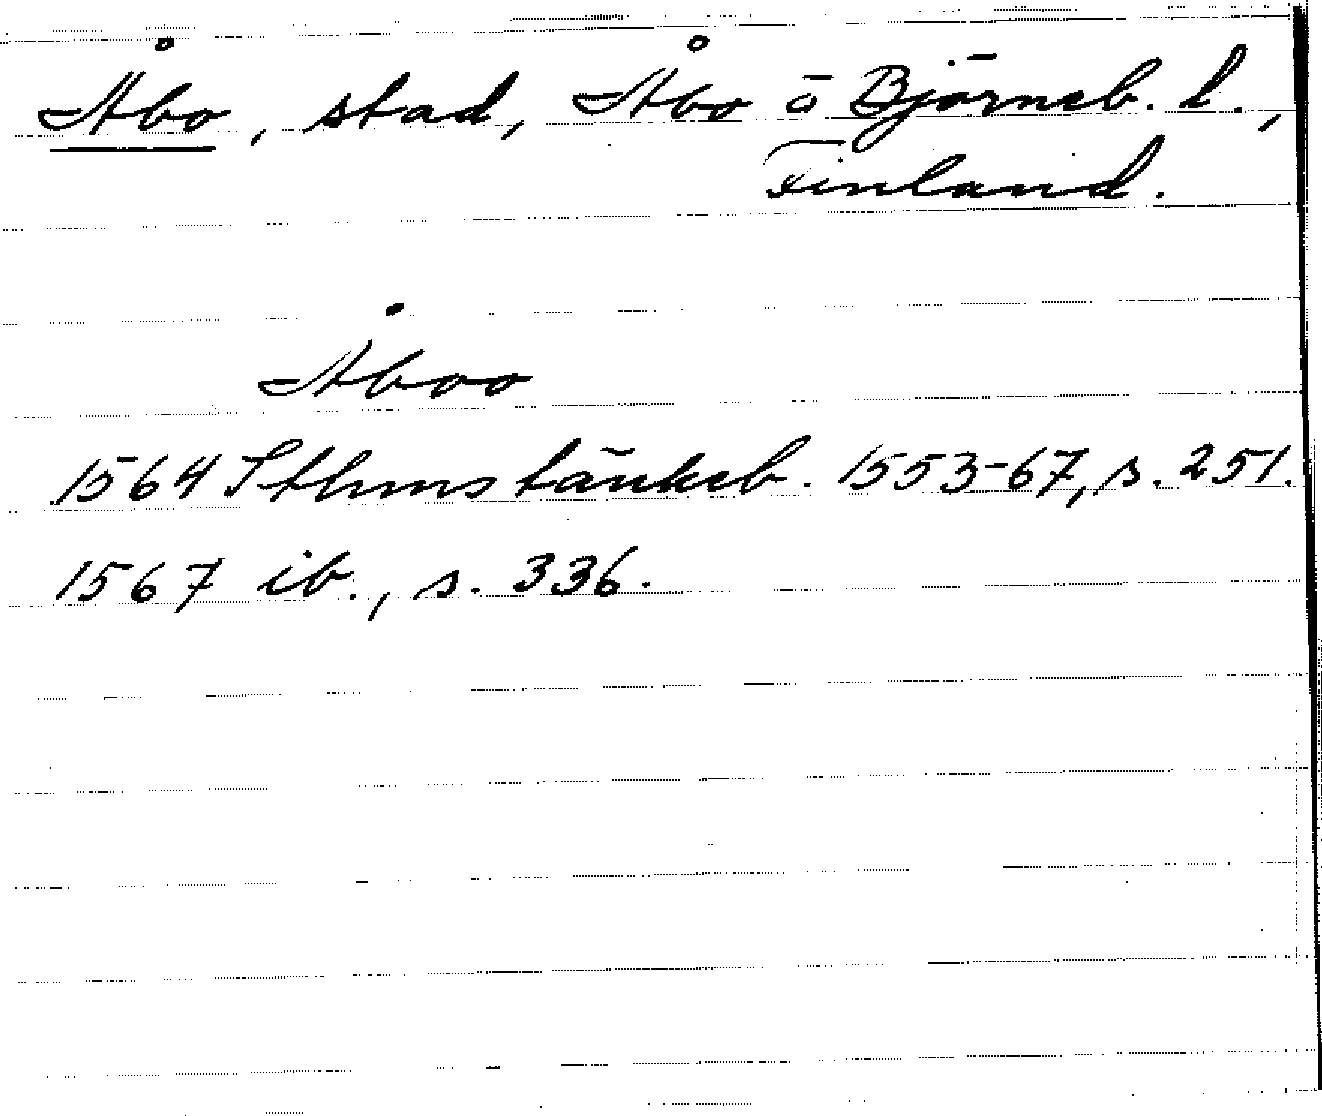 Åbo, stad, Åbo o Björneb. l.,
Finland.
Åboo
1564 Sthms tänkeb. 1553-67, s. 251.
1567 ib., s. 336.